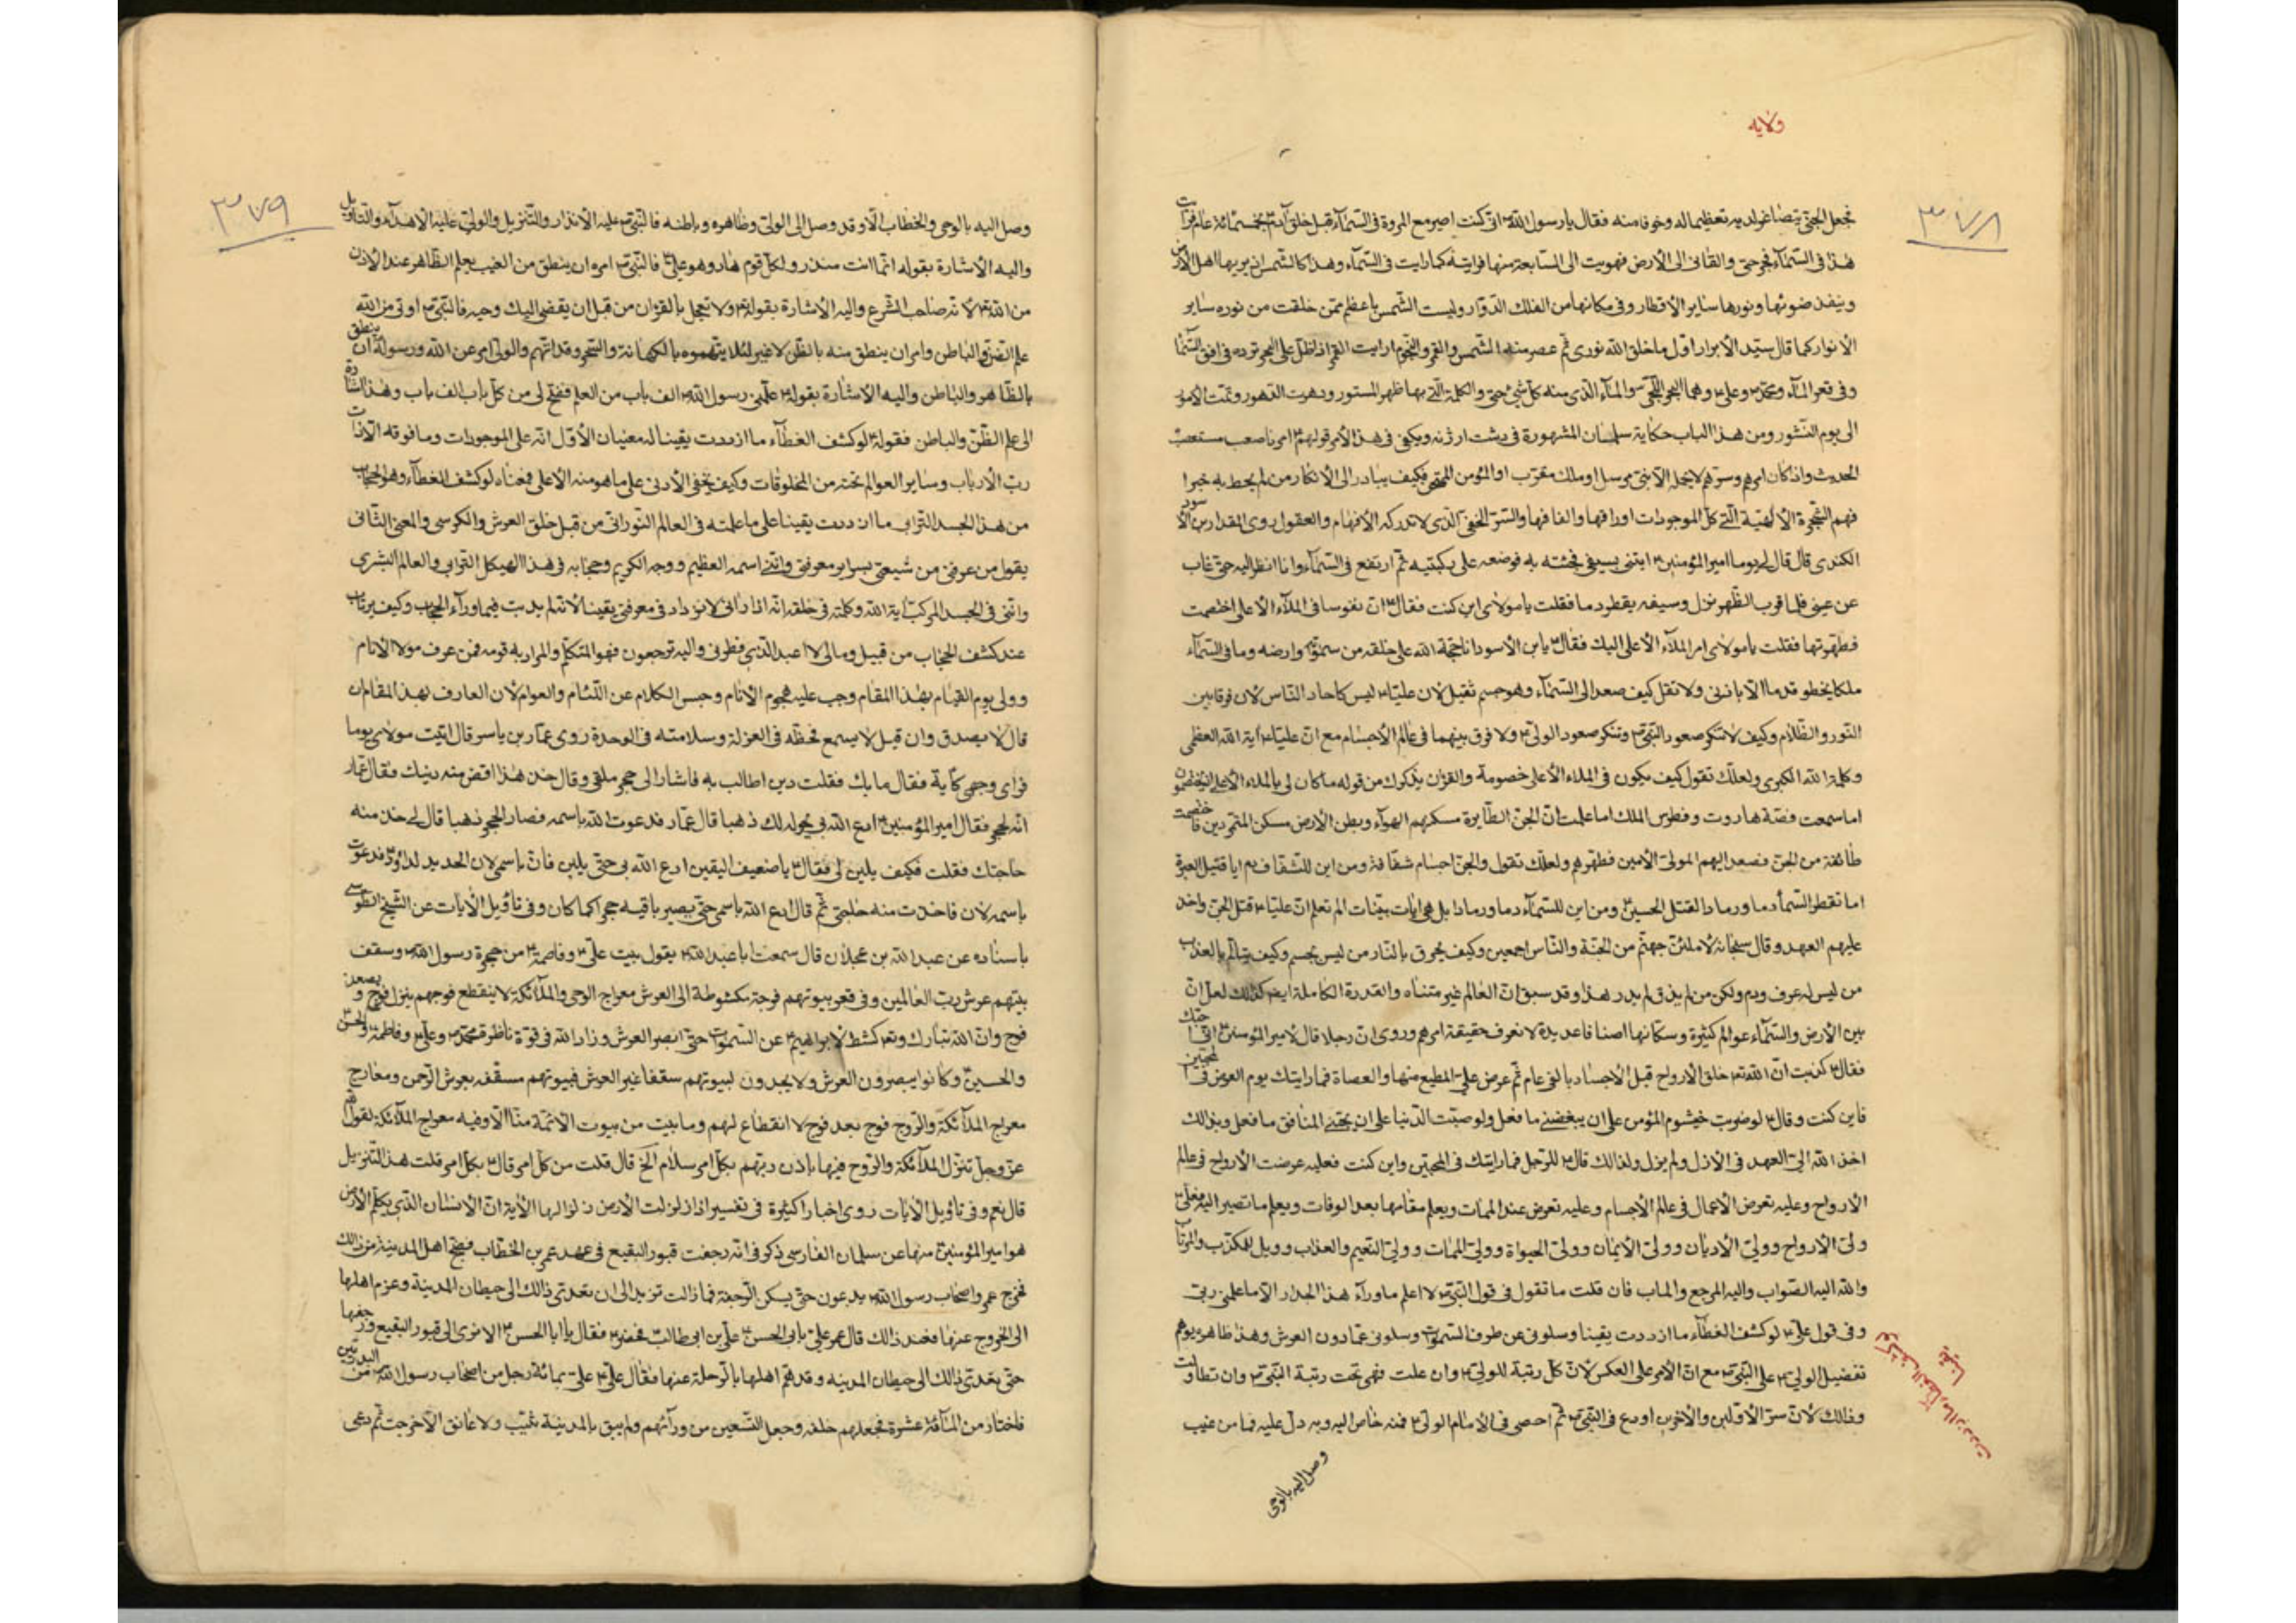 ولايه
٣٧٨
فجعل الجنّي يتصاغر لديه تعظيما له وخوفا منه فقال يا رسول الله ص انّى كنت اصير مع المردة فى السّمآء قبل خلق آدم بخمسمائة عام فرأيت
هذا فى السّمآء فجرحنى والقانى الى الأرض فهويت الى السّابعة منها فرايته كما رايت فى السّمآء وهذا كالشّمس اذ يريها اهل الأرض
وينفذ ضوئها ونورها ساير الأقطار وفى مكانها من الفلك الدّوّار وليست الشّمس باعظم ممّن خلقت من نوره ساير
الأنوار كما قال سيّد الأبرار اوّل ما خلق الله نورى ثمّ عصر منه الشّمس والقمر والنّجوم ارايت القمر اذ اظلّ على البحر تره فى افق السّمآء
وفى قعر المآء ومحمّد ص وعلى ع وهما البحر اللّجّى والمآء الّذى منه كلّ شئ حىّ والكلمة الّتى بها ظهر المستور ودهرت الدّهور وتمّت الأمور
الى يوم النّشور ومن هذا الباب حكاية سلمان المشهورة فى دشت ارژنه ويكفى فى هذا الأمر قولهم ع امرنا صعب مستصعب
الحديث واذ كان امرهم وسرّهم لا يحمله الّا نبىّ مرسل او ملك مقرّب او المؤمن الممتحن فكيف يبادر الى الأنكار من لم يحط به خبرا
فهم الشّجرة الألهيّة الّتى كلّ الموجودات اوراقها والفافها والسّرّ الخفىّ الّذى لا تدركه الأفهام والعقول روى المقداد بن الأسود
الكندى قال قال لى يوما امير المؤمنين ع ايتنى بسيفى فجئته به فوضعه على ركبتيه ثمّ ارتفع فى السّمآء وانا انظر اليه حتّى غاب
عن عينى فلمّا قرب الظّهر نزل وسيفه يقطر دما فقلت يا مولاى اين كنت فقال ع انّ نفوسا فى الملآء الأعلى اختصمت
فطهّرتها فقلت يا مولاى امر الملآء الأعلى اليك فقال ع يا بن الأسود انا حجّة الله على خلقه من سمواته وارضه وما فى السّمآء
ملك يخطو قدما الّا باذنى ولا تقل كيف صعد الى السّمآء وهو جسم ثقيل لأن عليّا ع ليس كاحاد النّاس لأن فرقا بين
النّور والظّلام وكيف لا تنكر صعود النّبى ص وتنكر صعود الولىّ ع ولا فرق بينهما فى عالم الأجسام مع انّ عليّا ع آية الله العظمى
وكلمة الله الكبرى ولعلّك تقول كيف يكون فى الملاء الأعلى خصومة والقرآن يذكرك من قوله ما كان لى بالملاء الأعلى اذ يختصمون
اما سمعت قصّة هاروت وفطرس الملك اما علمت انّ الجنّ الطّايرة مسكنهم الهوآء وبطن الأرض مسكن المتمرّدين فاختصمت
طائفة من الجنّ فصعد اليهم المولىّ الأمين فطهّرهم ولعلّك تقول والجنّ اجسام شفّافة ومن اين للشّفّاف دم ايا قتيل العبرة
اما تقطر السّمآء دما ورمادا لقتل الحسين ع ومن اين للسّمآء دما ورمادا بل هى ايات بيّنات الم تعلم انّ عليّا ع قتل الجنّ واخذ
عليهم العهد وقال سبحانه لأملئنّ جهنّم من الجنّة والنّاس اجمعين وكيف يحرق بالنّار من ليس بجسم وكيف يتألّم بالعذاب
من ليس له عرف ودم ولكن من لم يذق لم يدر هذا وقد سبق انّ العالم غير متناه والقدرة الكاملة ايضا كذلك لعلّ انّ
بين الأرض والسّمآء عوالم كثيرة وسكّانها اصنافا عديدة لا نعرف حقيقة امرهم وروى انّ رجلا قال لأمير المؤمنين ع انّى احبّك
فقال ع كذبت انّ الله تعالى خلق الأرواح قبل الأجساد بالفى عام ثمّ عرض علىّ المطيع منها والعصاة فما رايتك يوم العرض فى المحبّين
فاين كنت وقال ع لو ضربت خيشوم المؤمن على ان يبغضنى ما فعل ولو صببت الدّنيا على ان يحبّنى المنافق ما فعل وبذلك
اخذ الله الىّ العهد فى الأزل ولم يزل ولذلك قال ع للرّجل فما رايتك فى المحبّين واين كنت فعليه عرضت الأرواح فى عالم
الأرواح وعليه تعرض الأعمال فى عالم الأجسام وعليه تعرض عند الممات ويعلم مقامها بعد الوفات ويعلم ما تصير اليه فعلى ع
ولىّ الأرواح وولىّ الأديان وولىّ الأيمان وولىّ الحيوة وولىّ الممات وولىّ النّعيم والعذاب وويل للمكذّب والمرتاب
والله اليه الصّواب واليه المرجع والماب فان قلت ما تقول فى قول النّبى ص لا اعلم ما ورآء هذا الجدار الّا ما علّمنى ربّى
وفى قول على ع لو كشف الغطآء ما ازددت يقينا وسلونى عن طرق السّموات وسلونى عمّا دون العرش وهذا ظاهره يوهم
تفضيل الولىّ ع على النّبى ص مع انّ الأمر على العكس لأنّ كلّ رتبة للولىّ ع وان علت فهى تحت رتبة النّبى ص وان تطاولت
وذالك لأنّ سرّ الأوّلين والأخرين اودع فى النّبى ص ثمّ احصى فى الأمام الولى ع فمنه خاص اليه وبه دلّ عليه فما من غيب
وصل اليه بالوحى
لو كشف الغطآء ما ازددت
يقينا
٣٧٩
وصل اليه بالوحى والخطاب الّا وقد وصل الى الولىّ وظاهره وباطنه فالنّبى ص عليه الأنذار والتّنزيل والولىّ عليه الأهدآء والتّاويل
واليه الأشارة بقوله انّما انت منذر ولكلّ قوم هاد وهو علىّ ع فالنّبى ص امره ان ينطق من الغيب بعلم الظّاهر عند الأذن
من الله تعالى لأنّه صاحب الشّرع واليه الأشارة بقوله تعالى ولا تعجل بالقرآن من قبل ان يقضى اليك وحيه فالنّبى ص اوتى من الله
علم الظّاهر والباطن وامر ان ينطق منه بالظّاهر لا غير لئلا يتّهموه بالكهانة والسّحر وقد اتّهم والولىّ امر عن الله ورسوله ان ينطق
بالظّاهر والباطن واليه الأشارة بقوله ع علّمنى رسول الله ص الف باب من العلم ففتح لى من كلّ باب الف باب وهذا اشارة
الى علم الظّاهر والباطن فقوله ع لو كشف الغطآء ما ازددت يقينا له معنيان الأوّل انّه على الموجودات وما فوقه الّا ذات
ربّ الأرباب وساير العوالم تحته من المخلوقات وكيف يخفى الأدنى على ما هو منه الأعلى فمعناه لو كشف الغطآء وهو الحجاب
من هذا الجسد التّرابى ما ازددت يقينا على ما علمته فى العالم النّورانى من قبل خلق العرش والكرسى والمعنى الثّانى
يقول من عرفنى من شيعتى بسراير معرفتى وانّنى اسمه العظيم ووجه الكريم وحجابه فى هذا الهيكل التّرابى والعالم البشرى
وانّنى فى الجسد المركّب آية الله وكلمته فى خلقه انّه اذا رانى لا يزداد فى معرفتى يقينا لأنّه لم يدبت فيما ورآء الحجاب وكيف يرتاب
عند كشف الحجاب من قبيل وما لى لا اعبد الّذى فطرنى واليه ترجعون فهو المتكلّم والمراد به قومه فمن عرف مولا الأنام
وولى يوم القيام بهذا المقام وجب عليه هجوم الأنام وحبس الكلام عن اللّئام والعوام لأن العارف بهذا المقام ان
قال لا يصدق وان قيل لا يسمع فحظّه فى العزلة وسلامته فى الوحدة روى عمّار بن ياسر قال اتيت مولاى يوما
فراى وجهى كأبة فقال ما بك فقلت دين اطالب به فاشار الى حجر ملقى وقال خذ هذا اقض منه دينك فقال عمّار
انّه لحجر فقال امير المؤمنين ع ادع الله بى يحوله لك ذهبا قال عمّار فدعوت الله باسمه فصار الحجر ذهبا قال لى خذ منه
حاجتك فقلت فكيف يلين لى فقال ع يا ضعيف اليقين ادع الله بى حتّى يلين فانّ باسمى لان الحديد لداود ع فدعوت
باسمه لان فاخذت منه حاجتى ثمّ قال ادع الله باسمى حتّى يصير باقيه حجرا كما كان وفى تأويل الأيات عن الشّيخ الطّوسى
باسناده عن عبد الله بن عجلان قال سمعت ابا عبد الله ع يقول بيت علىّ ع وفاطمة ع من حجرة رسول الله ص وسقف
بيتهم عرش ربّ العالمين وفى قعر بيوتهم فرجة مكشوطة الى العرش معراج الوحى والملآئكة لا ينقطع فوجهم ينزل فوج ويصعد
فوج وانّ الله تبارك وتعالى كشط لأبراهيم ع عن السّموات حتّى ابصر العرش وزاد الله فى قوّة ناظره محمّد ص وعلى ع وفاطمة ع والحسن
والحسين ع وكانوا يبصرون العرش ولا يجدون لبيوتهم سقفا غير العرش فبيوتهم مسقّفه بعرش الرّحمن ومعارج
معراج الملآئكة والرّوح فوج بعد فوج لا انقطاع لهم وما بيت من بيوت الأئمّة منّا الّا وفيه معراج الملآئكة لقول الله
عزّ وجلّ تنزّل الملآئكة والرّوح فيها باذن ربّهم بكلّ امر سلام الخ قال قلت من كلّ امر قال ع بكلّ امر قلت هذا التّنزيل
قال نعم وفى تأويل الأيات روى اخبارا كثيرة فى تفسير اذا زلزلت الأرض زلزالها الأية انّ الأنسان الّذى يكلّم الأرض
هو امير المؤمنين ع منها عن سلمان الفارسى ذكر فى انّه رجفت قبور البقيع فى عهد عمر بن الخطّاب فضجّ اهل المدينة من ذالك
فخرج عمر واصحاب رسول الله ص يدعون حتّى يسكن الرّجفة فما زالت تزيد الى ان تعدّى ذالك الى حيطان المدينة وعزم اهلها
الى الخروج عنها فعند ذالك قال عمر علىّ بابى الحسن ع علىّ بن ابى طالب فحضر فقال يا ابا الحسن ع الا ترى الى قبور البقيع ورجفها
حتّى بعدتى ذالك الى حيطان المدينه وقد همّ اهلها بالرّحلة عنها فقال علىّ ع علىّ بمائة رجل من اصحاب رسول الله ص من البدريّين
فاختار من المآئة عشرة فجعلهم خلفه وجعل التّسعين من ورآئهم ولم يبق بالمدينة ثيّب ولا عاتق الّا خرجت ثمّ دعى